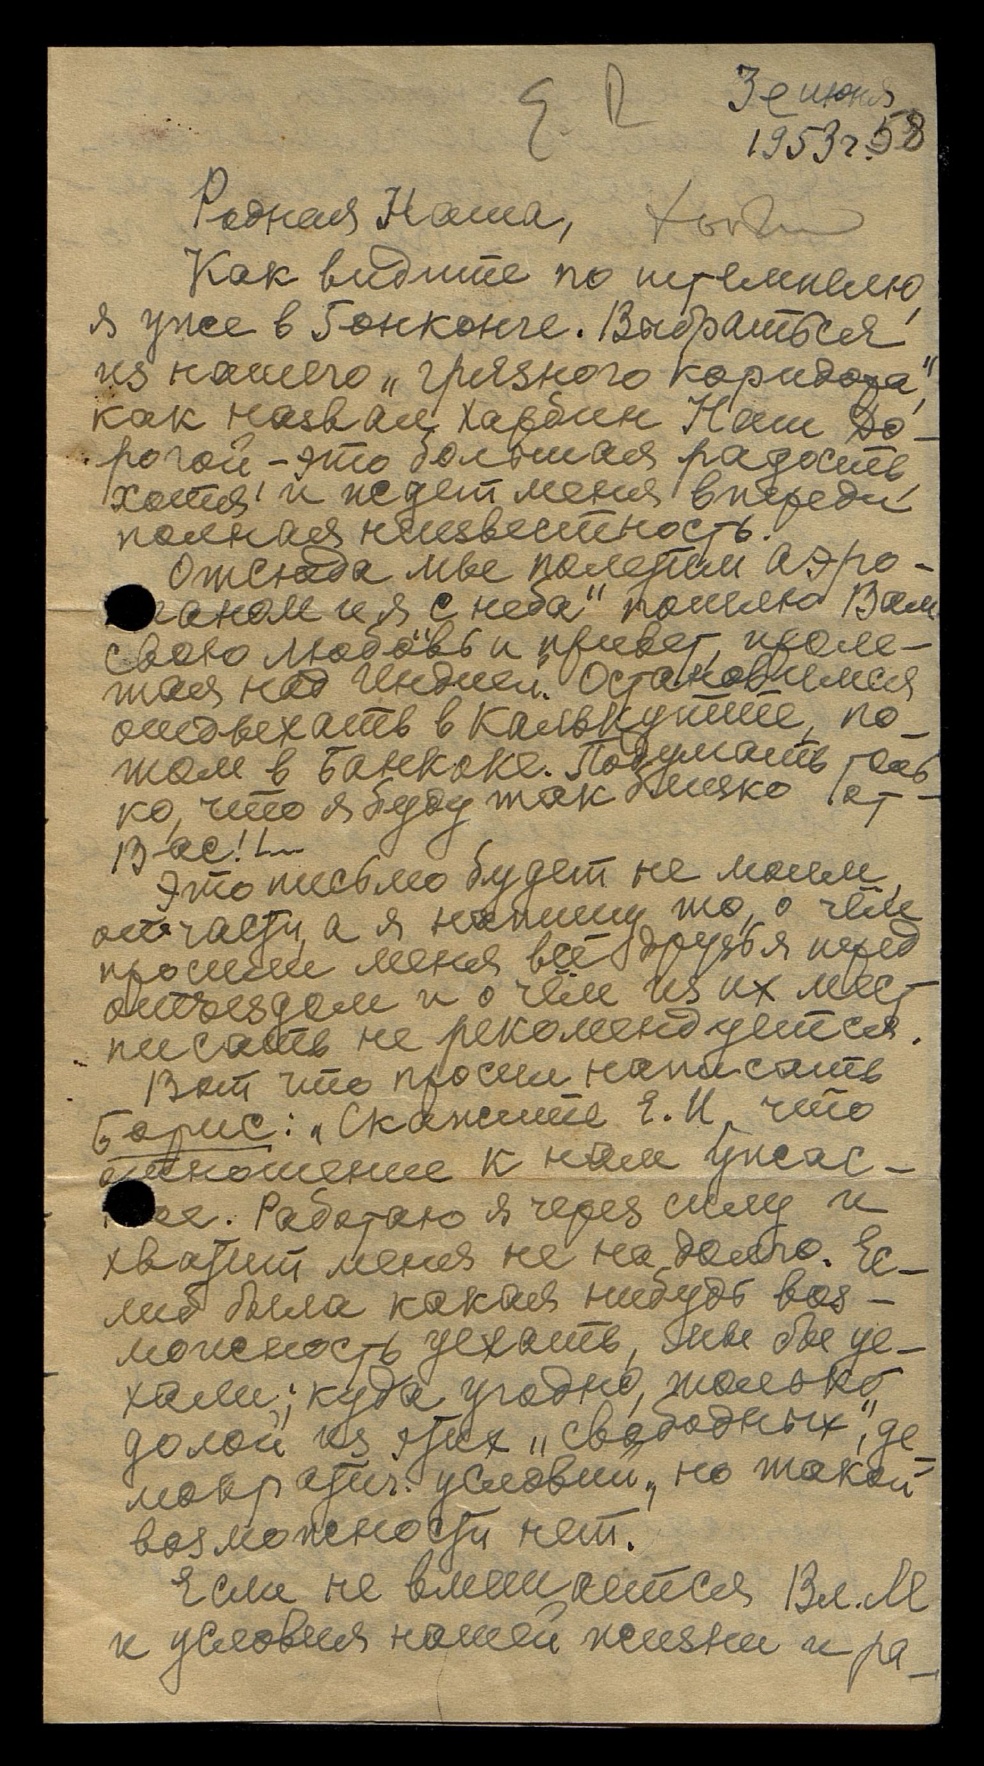 E. R 3е июня
1953 г. 58
Родная Наша,
Как видите по штемпелю,
я уже в Гонконге. Выбраться
из нашего „грязного коридора",
как назвал Харбин Наш До-
рогой – это большая радость,
хотя и ждет меня впереди
полная неизвестность.
Отсюда мы полетим аэро-
ланом и я с неба" пошлю Вам
свою любовь и привет, проле-
тая над Индией. Остановимся
отдыхать в Калькутте, по-
том в Банкоке. Подумать толь
ко, что я буду так близко от
Вас!!...
Это письмо будет не моим,
отчасти, а я напишу то, о чём
просили меня всё друзья перед
отъездом и о чём из их мест
писать не рекомендуется.
Вот что просил написать
Борис: „Скажите Е. И, что
отношение к нам ужас-
ное. Работаю я через силу и
хватит меня не на долго. Ес-
либ была какая нибудь воз-
можность уехать, мы бы уе-
хали; куда угодно, только
долой из этих „свободных", де
мократич. условий„ но такой
возможности нет.
Если не вмешается Вл. М
и условия нашей жизни и ра-